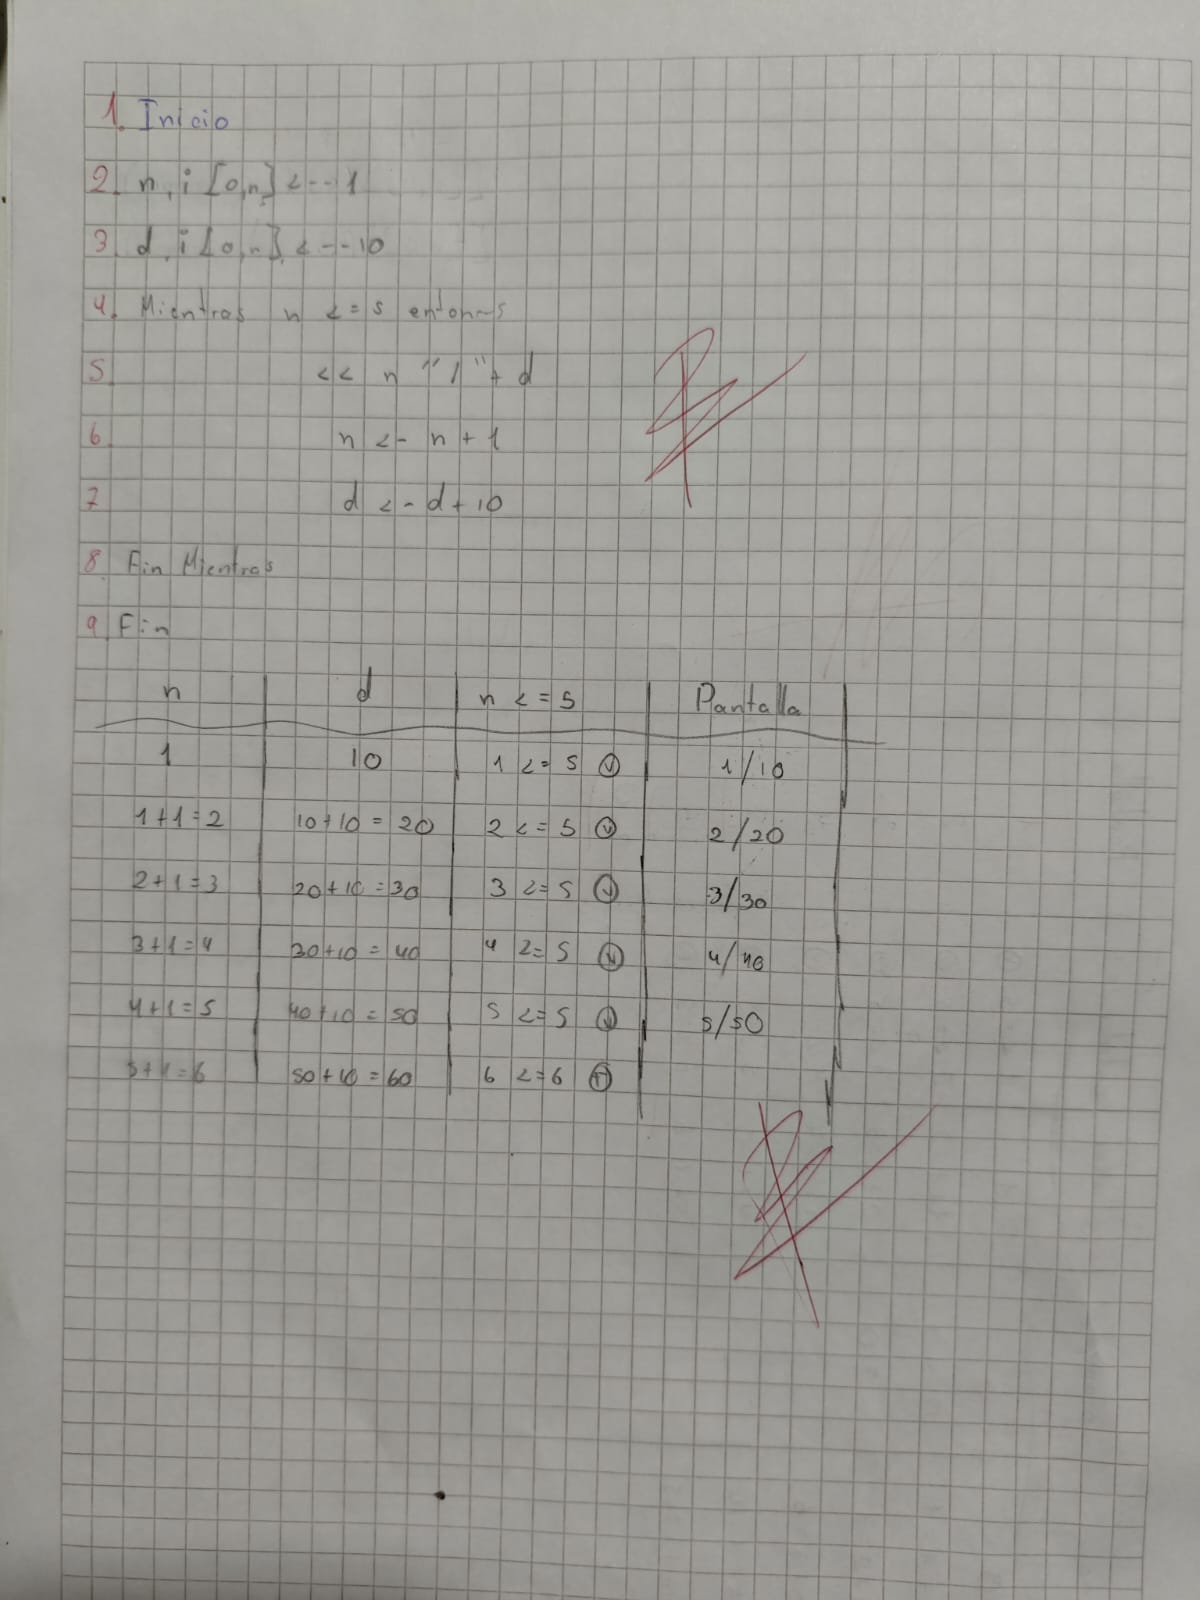 1. Inicio
2. n, i [0,n] <-- 1
3 d, i [0,n] <-- 10
4. Mientras n <= 5 entonces
5 << n "/" + d
6 n <- n + 1
7 d <- d + 10
8. Fin Mientras
9 Fin
n d n <= 5 Pantalla
1 10 1 <= 5 V 1/10
1+1=2 10+10=20 2 <= 5 V 2/20
2+1=3 20+10=30 3 <= 5 V 3/30
3+1=4 30+10=40 4 <= 5 V 4/40
4+1=5 40+10=50 5 <= 5 V 5/50
5+1=6 50+10=60 6 <= 6 F